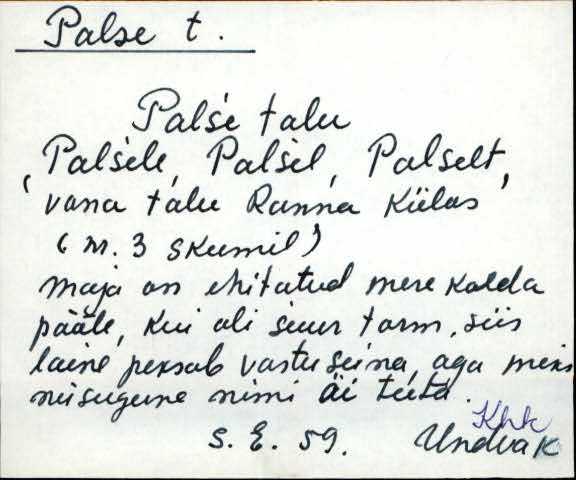 Palse t.
Palśe talu
, Palśele, Palśel, Palselt,
vana talu Ranna Külas
(nr. 3 skeemil)
maja on ehitatud mere kalda
pääle, kui oli suur torm, siis
laine peksab vastu seina, aga miks
niisugune nimi äi tiita.
Khk
S. E. 59. Undva K